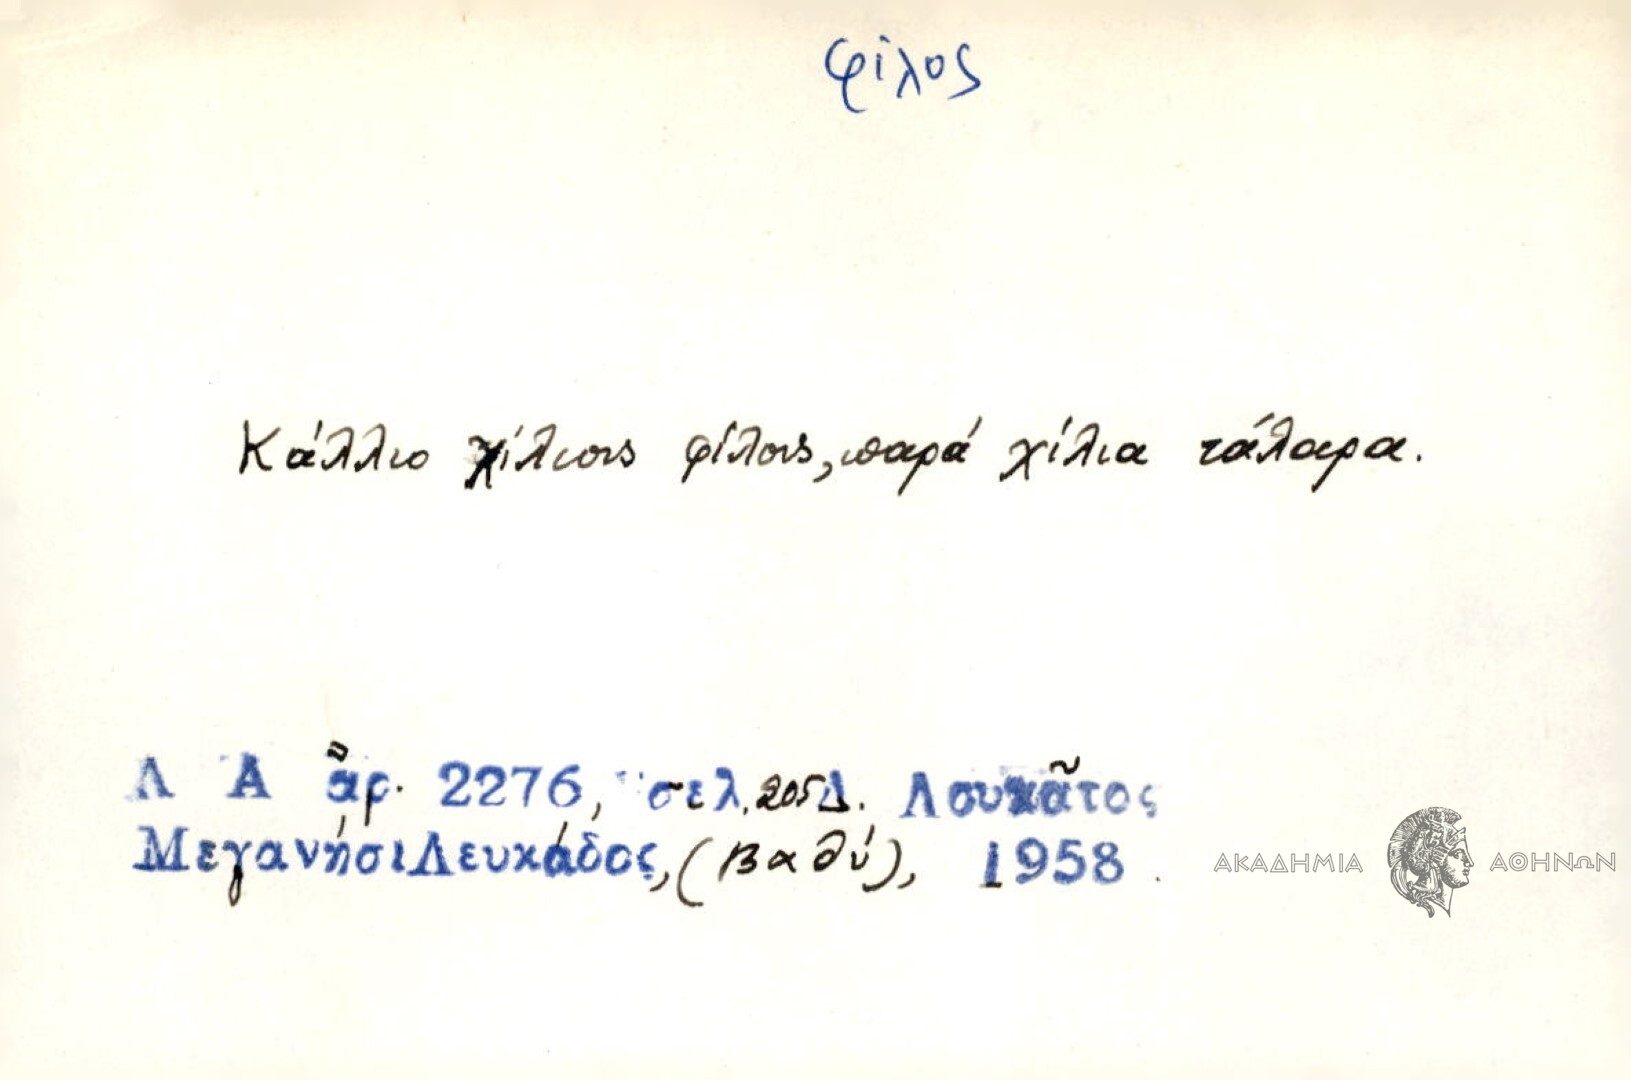 φίλος
Κάλλιο χίλιους φίλους, παρά χίλια τάλαρα.
Λ Α ἀρ. 2276, σελ. 205 Δ. Λουκᾶτος
Μεγανήσι Λευκάδος, (Βαθύ), 1958.
ΑΚΑΔΗΜΙΑ ΑΘΗΝΩΝ